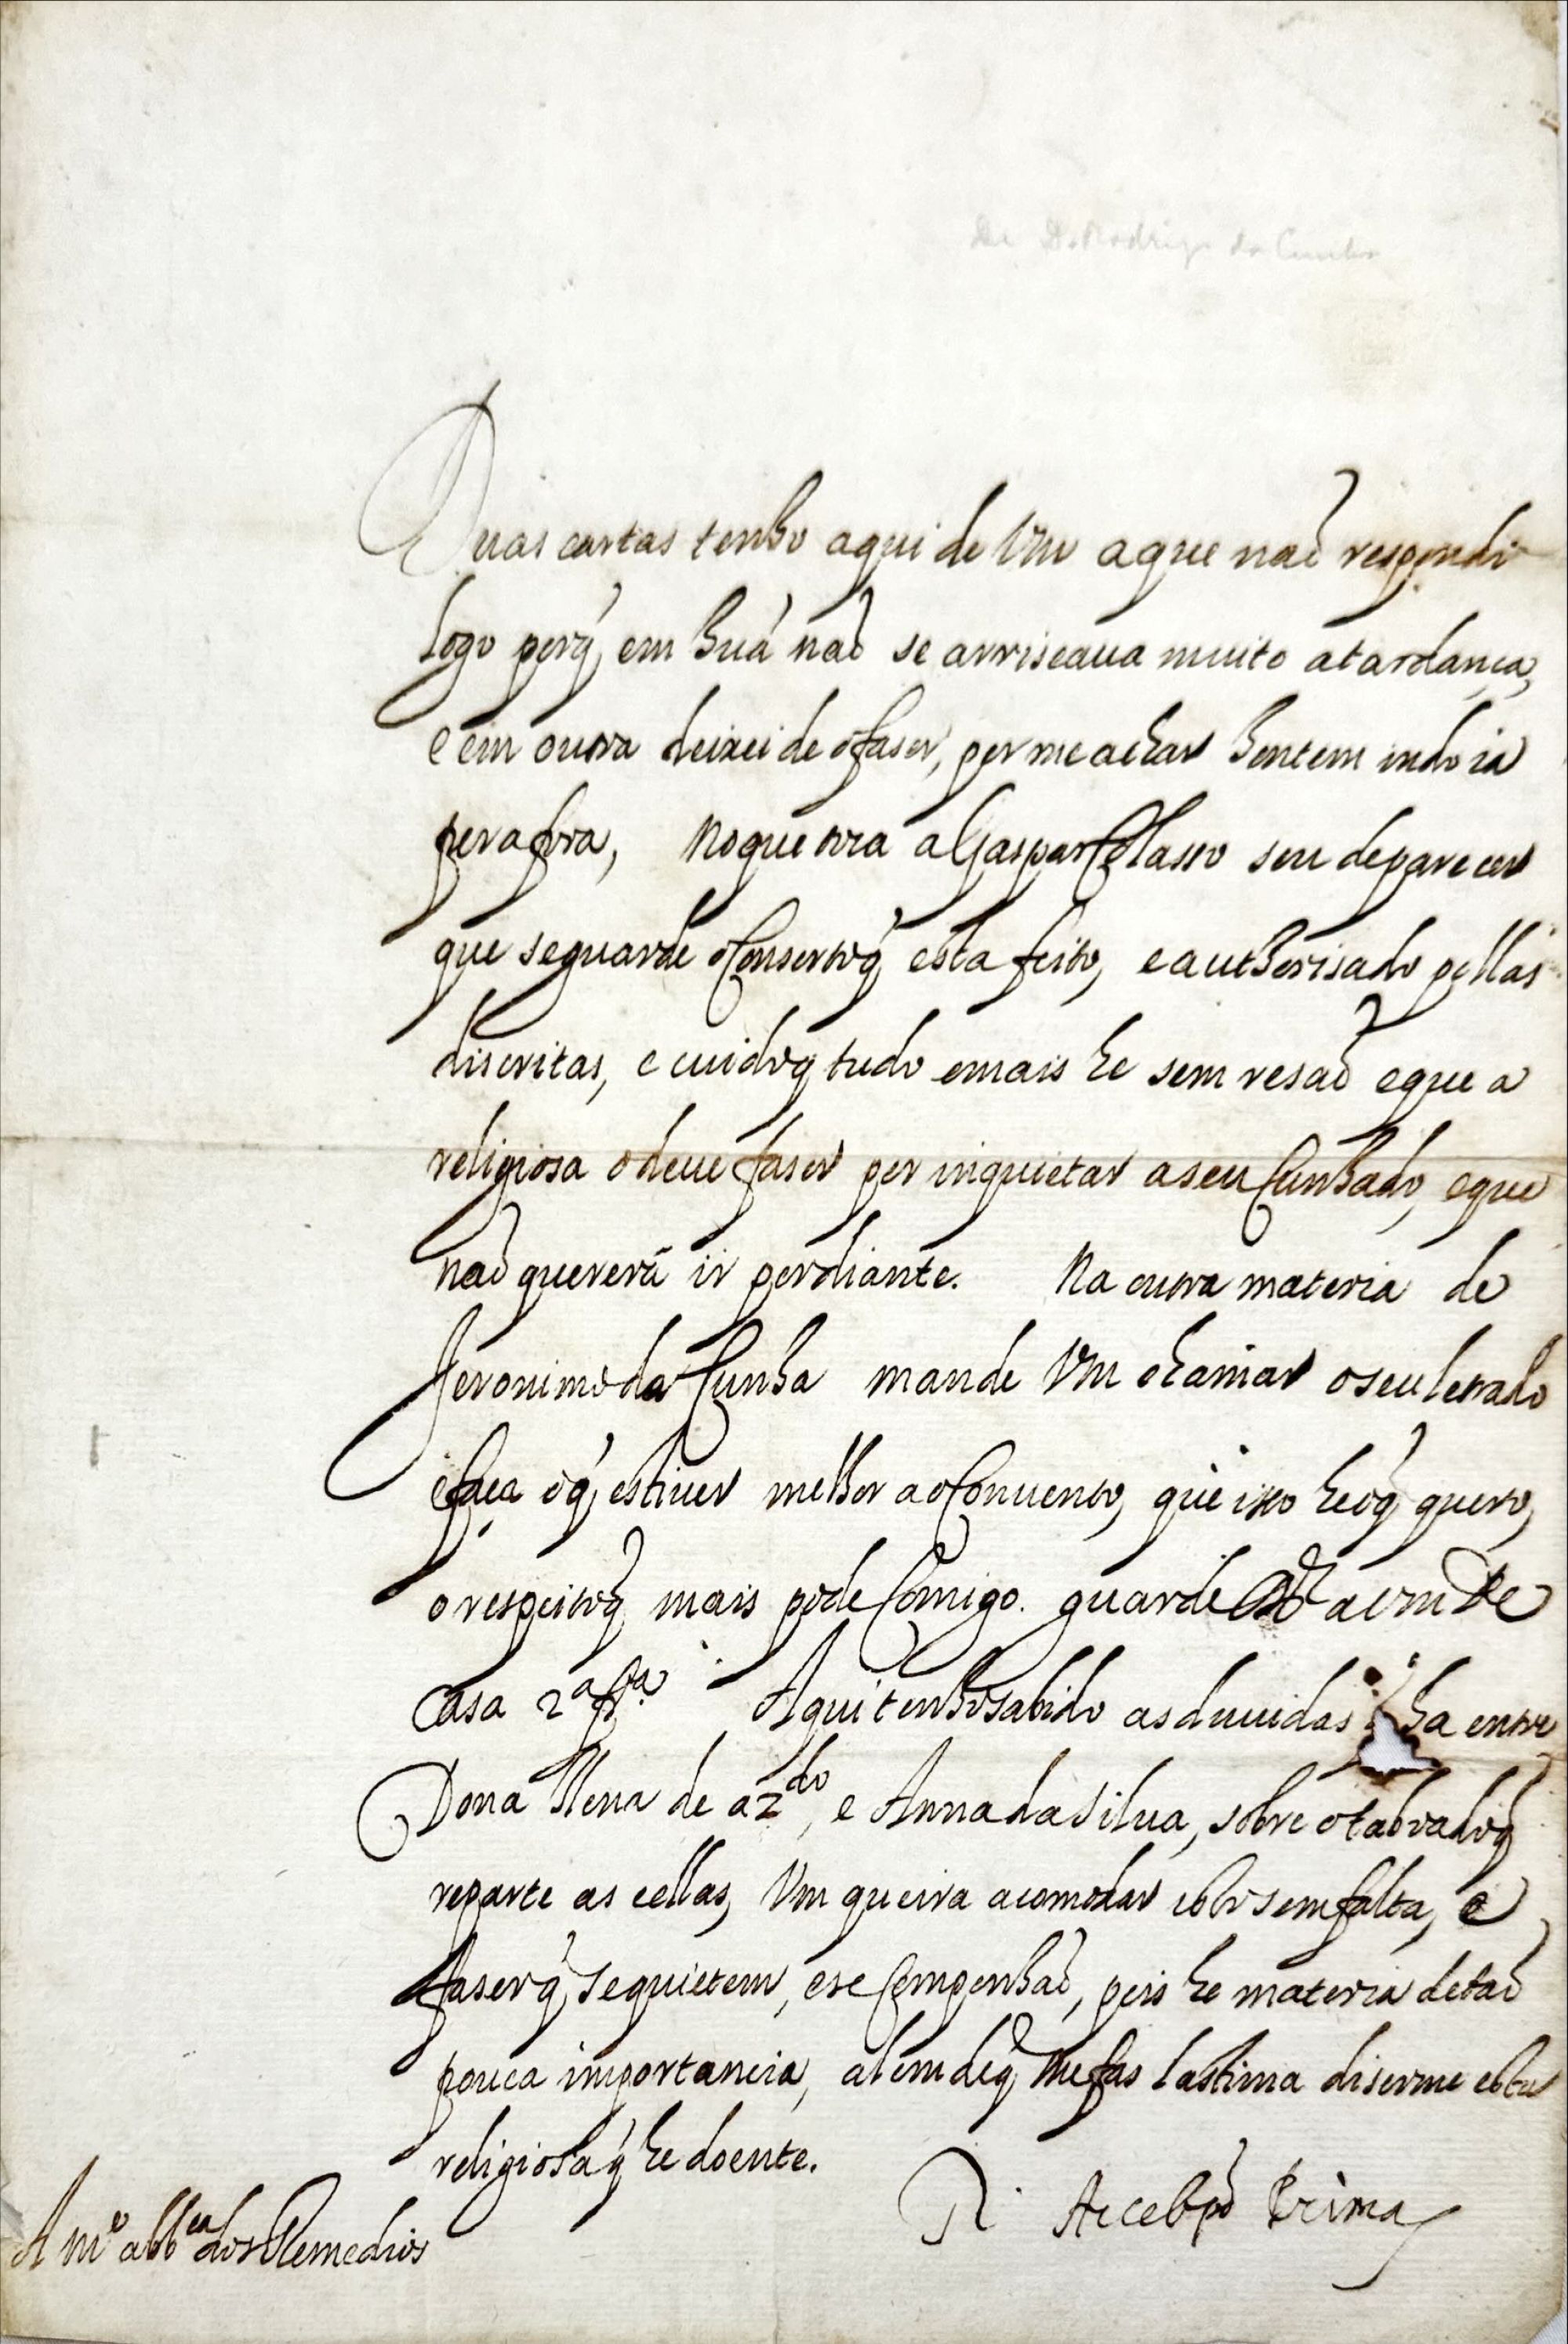 De D. Rodrigo da Cunha
Duas cartas tenho aqui de Vm aque naõ respondi
logo porq̃ em huã naõ se arriscaua muito atardança,
e em outra deixei de ofaser, por me achar hontem indo ia
pera fora, Noque toca a Gaspar Colasso sou deparecer
que seguarde oConsertoq̃ esta feito, eauthorisado pellas
discritas, e cuidoq̃ tudo omais he sem resaõ eque a
religiosa odeue faser por inquietar aseu Cunhado, eque
naõ quererá ir pordiante. Na outra materia de
Jeronimo da Cunha mande Vm chamar oseu letrado
efaça oq̃ estiuer melhor aoConuento, que isso heoq̃ quero,
orespeitoq̃ mais pode Comigo. guarde Ds avm De
Casa 2ª fra. Aqui tenhosabido asduuidas ha entre
Dona Ilena de azdo, e Anna da Silua, sobre otaboadoq̃
reparte as cellas, Vm queira acomodar isto semfalta, e
faserq̃ sequietem, ese Componhaõ, pois he materia detaõ
pouca importancia, alemdeq̃ mefas lastima diserme esta
religiosaq̃ he doente.
R. Arcebpo Primas
A Me abbea dos Remedios